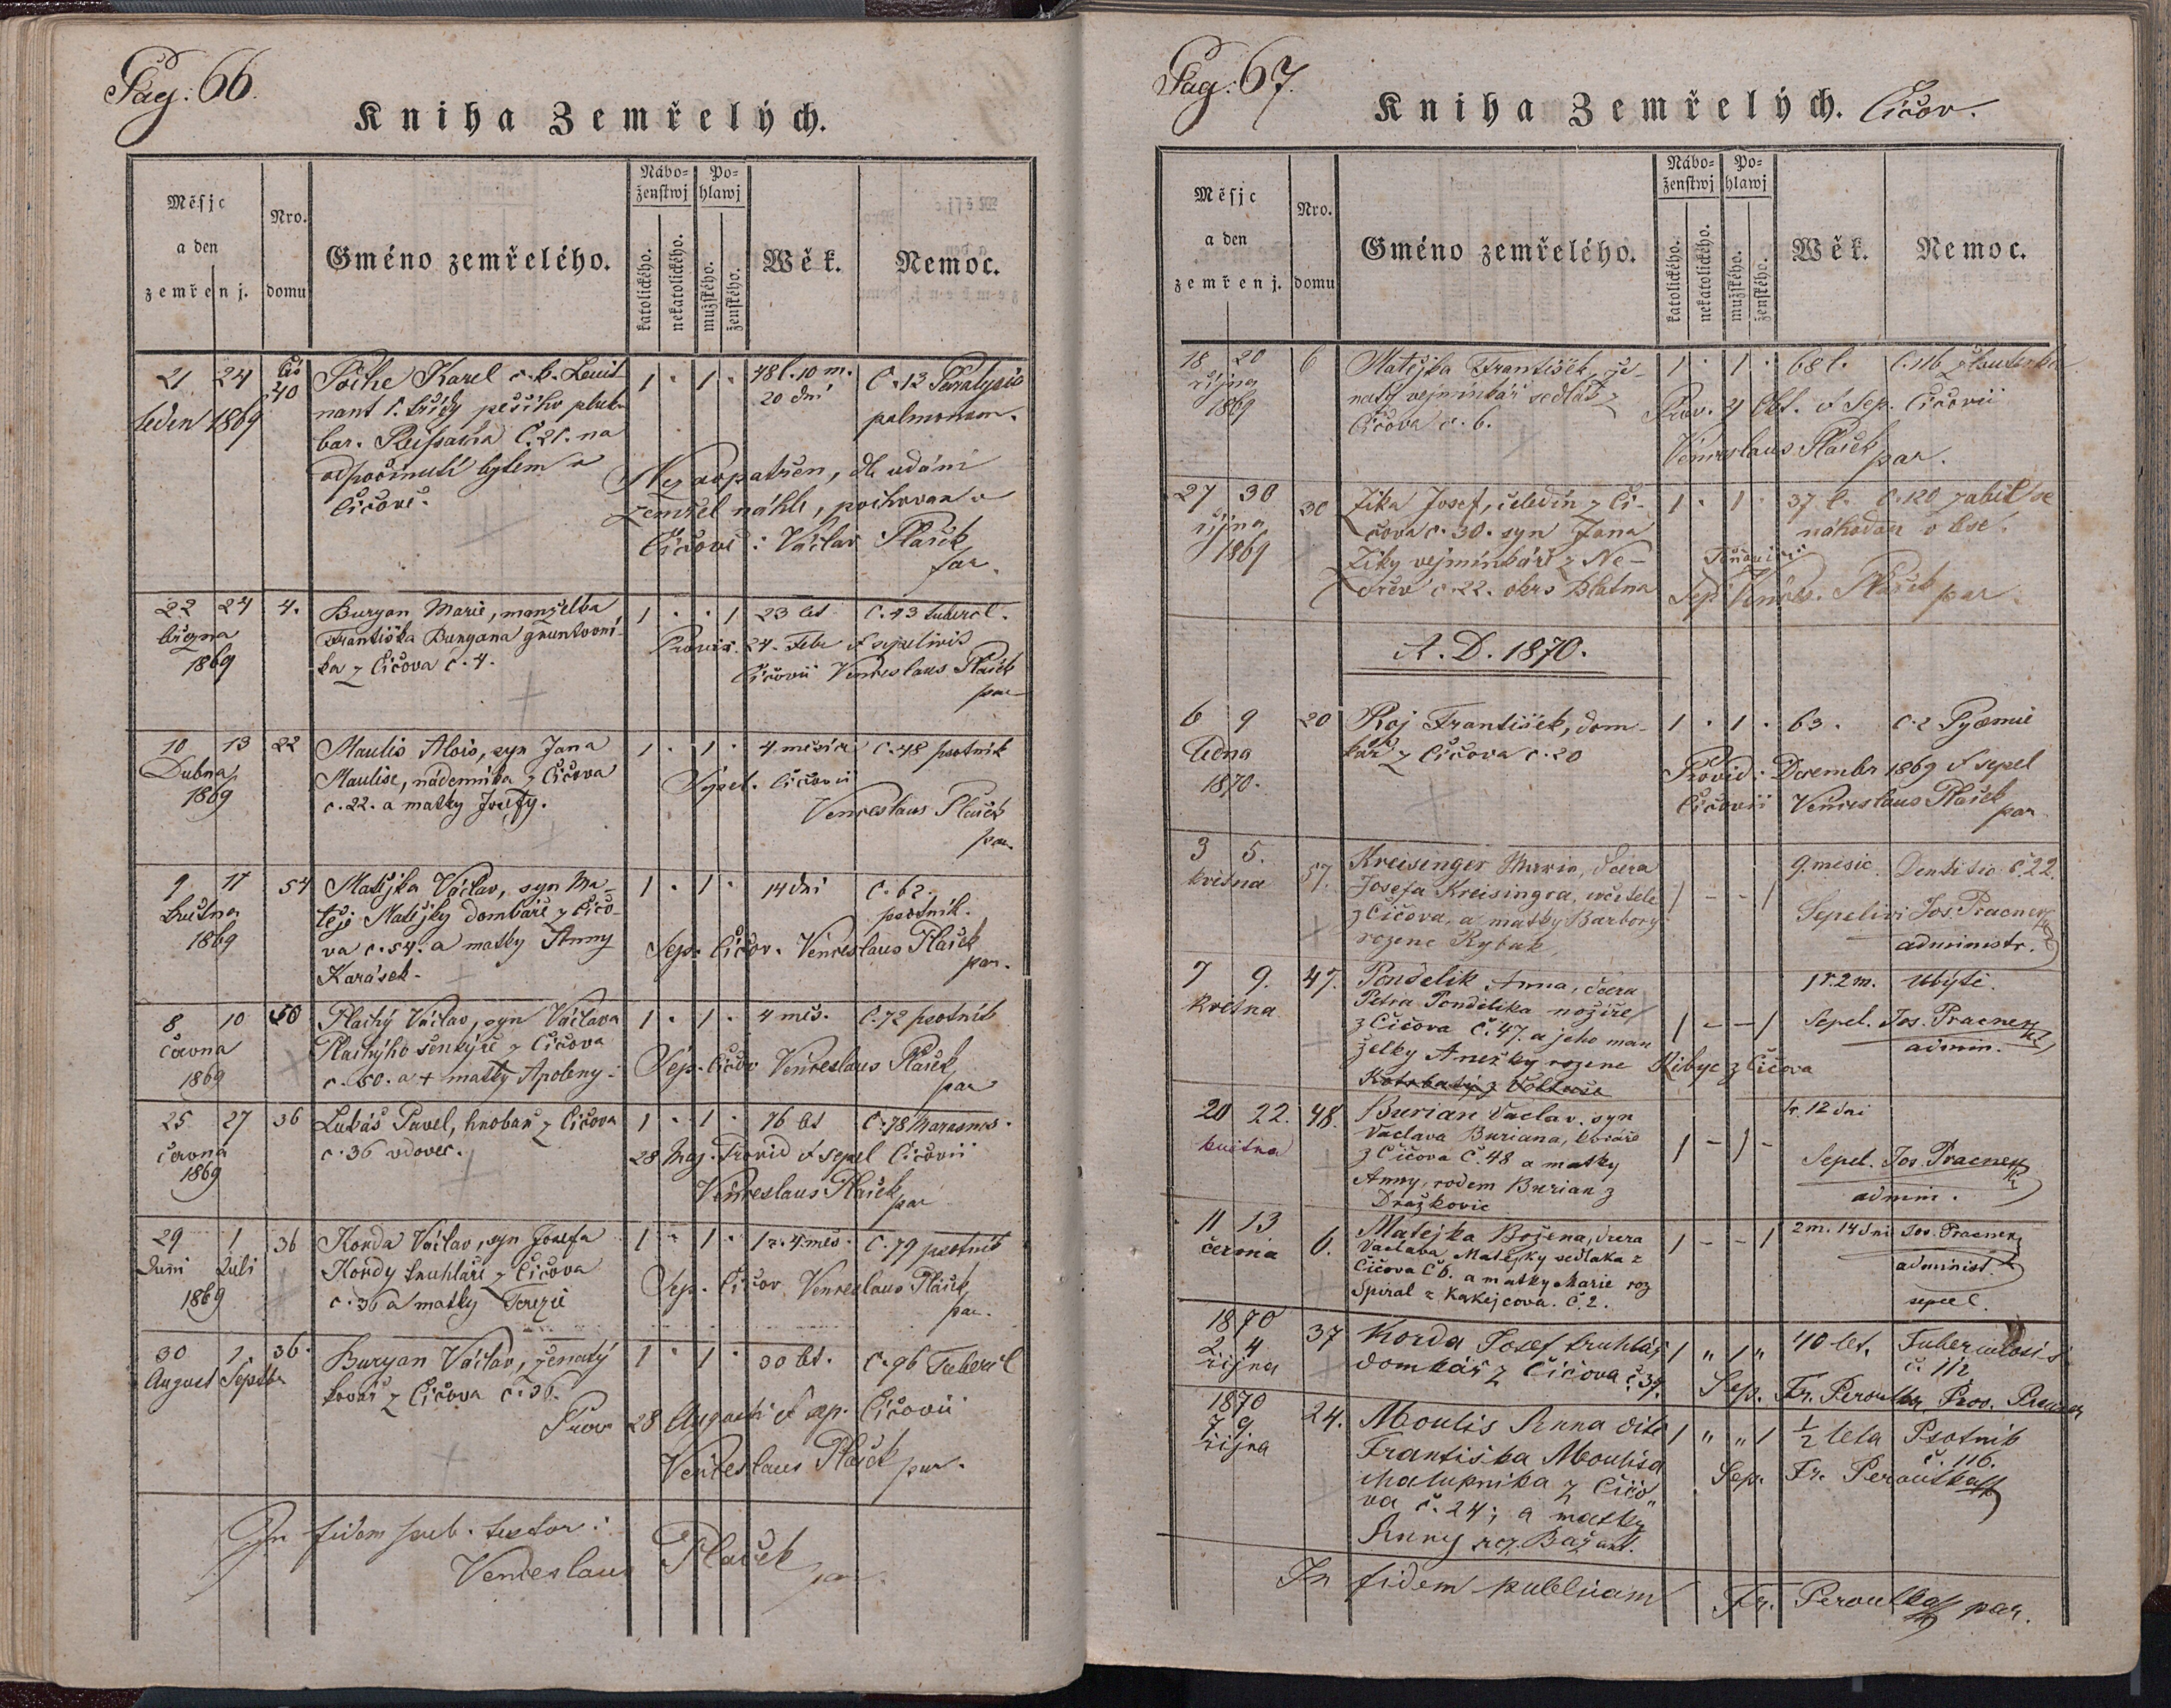 Pag: 66.
Kniha Zemřelých.
Měsjc
a den
zemřenj.
Nro.
domu
Gméno zemřelého.
Nábo=
ženstwj
katolického.
nekatolického.
Po=
hlawj
mužského.
ženského.
Wěk.
Nemoc.
21 24 Čís Poche Karel c. k. Leuit- 1 · 1 · 48 l. 10 m. C. 13 Paralysis
leden 1869 40 nant 1. třídy pěšího pluku 20 dní pulmonum.
bar. č. 21. na
odpočinutí bytem v
Čičově.
Nezaopatřen, dle udání
zemřel náhle, pochován v
Čičově: Václav Plaček
far.
22 24 4. Buryan Marie, manželka 1 · · 1 23 let C. 43 tubercl.
března Františka Buryana gruntovní-
1869 ka z Čičova č. 4.
24. Febr et sepelivit
Čičovii Venceslaus Plaček
par
10 13 22 Maulis Alois, syn Jana 1 · 1 · 4 měsíce C. 48 psotník
Dubna Maulise, nádenníka z Čičova Sepel. Čičovii
1869 c. 22. a matky Josefy. Venceslaus Plaček
par.
9 11 54 Matějka Václav, syn Ma- 1 · 1 · 14 dní C. 62.
května těje Matějky domkáře z Čičo- psotník.
1869 va c. 54. a matky Anny Sep. Čičov. Venceslaus Plaček
Karásek. par.
8 10 50 Plachý Václav, syn Václava 1 · 1 · 4 měs. C. 72 psotník
června Plachýho šenkýře z Čičova Sep. Čičov Venceslaus Plaček
1869 c. 50. a + matky Apoleny. par
25 27 36 Lukáš Pavel, hrobař z Čičova 1 · 1 · 76 let C. 78 Marasmus.
června c. 36 vdovec. 28 Maj. Provid et sepel Čičovii
1869 Venceslaus Plaček
par
29 1 36 Korda Václav, syn Josefa 1 · 1 · 1 r. 4 měs. C. 79 psotník
Juni Juli Kordy truhláře z Čičova Sep. Čičov Venceslaus Plaček
1869 c. 36 a matky Terezie par.
30 1. 36. Buryan Václav, ženatý 1 · 1 · 30 let. C. 96 Tubercl
August Septbr kovář z Čičova č. 36.
Prov 28 Augusti et sep. Čičovii
Venceslaus Plaček par.
In fidem pub. testor:
Venceslaus Plaček
par.
Pag: 67.
Kniha Zemřelých. Čičov.
Měsjc
a den
zemřenj.
Nro.
domu
Gméno zemřelého.
Nábo=
ženstwj
katolického.
nekatolického.
Po=
hlawj
mužského.
ženského.
Wěk.
Nemoc.
18 20 6 Matějka František, že- 1 · 1 · 68 l. C. 116
října natý vejminkář sedlák z Prov. et Sep. Čičovii
1869 Čičova c. 6. Venceslaus Plaček par.
27 30 30 Zika Josef, čeledín z Či- 1 · 1 · 37 l. C. 120 zabil se
října čova c. 30. syn Jana náhodou v lese.
1869 Ziky vejminkáře z Ne-
c. 22. okrs Blatna Sep. Vences. Plaček par.
A. D. 1870.
6 9 20 Roj František, dom- 1 · 1 · 63. C. 2 Pyæmie
ledna kář z Čičova c. 20 Provid: Decembr 1869 et sepel
1870. Čičovii Venceslaus Plaček
par
3 5. 57. Kreisinger Maria, dcera 1 - - 1 9. měsic. Dentitio č. 22.
května Josefa Kreisingra, učitele
z Čičova, a matky Barbory Sepelivi Jos. Pracner
rozene Rybak, administr.
7 9. 47. Pondelik Anna, dcera 1 - - 1 1 r. 2 m. Ubýtě.
května Petra Pondělika nožíře
z Čičova č. 47. a jeho man Sepel. Jos. Pracner
želky Anežky rozene Ribyc z Čičova admin.
20 22. 48. Burian Vaclav, syn 1 - 1 - 12 dni
května Vaclava Buriana,
z Čičova č. 48 a matky Sepel. Jos. Pracner
Anny, rodem Burian z admin.
Dražkovic
11 13 6. Matejka Božena, dcera 1 - - 1 2 m. 14 dni Jos. Pracner
června Vaclava Matejky sedlaka z administ.
Čičova č 6. a matky Marie roz sepel.
Spiral z Kakejcova. č. 2.
1870
2 4 37 Korda Josef truhlář 1 " 1 " 40 let. Tuberculosis
října domkář z Čičova č 37. č. 112
Sep. Fr. Peroutka, Prov. Pracner
1870
7 9 24. Moulis Anna dítě 1 " " 1 ½ leta Psotník
října Františka Moulisa č. 116.
chalupníka z Čičo" Sep. Fr. Peroutka
va č. 24; a matky
Anny roz. Bažant.
In fidem publicam Fr. Peroutka par.